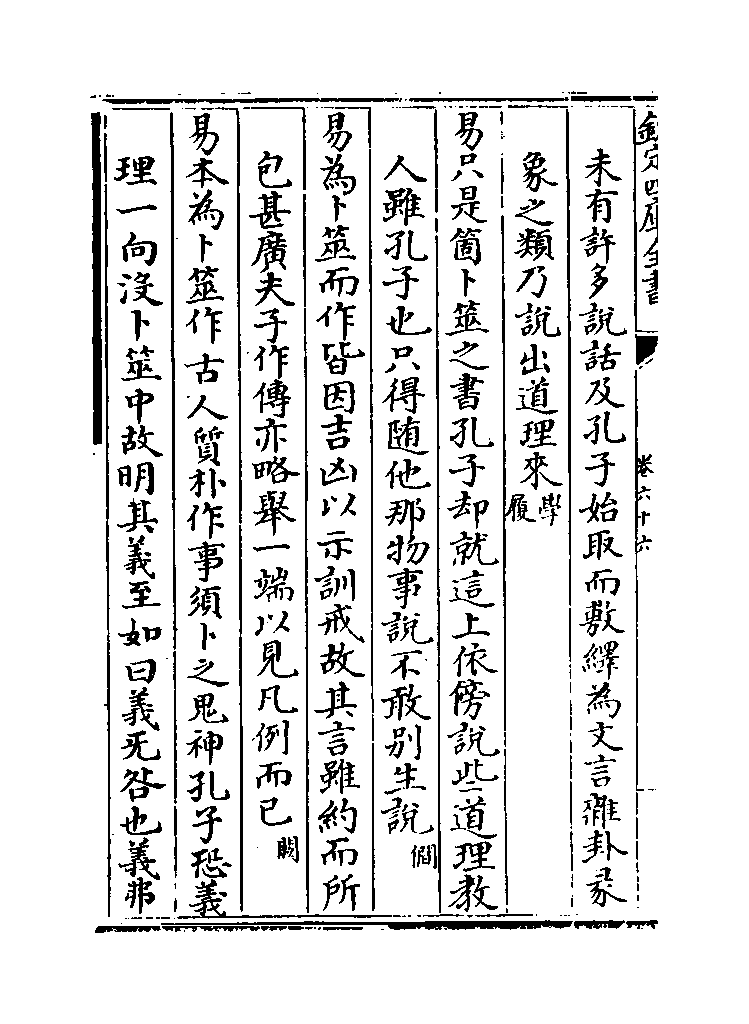 欽定四庫全書
卷六十六
未有許多說話及孔子始取而敷繹為文言雜卦彖
象之類乃說出道理來學履
易只是箇卜筮之書孔子却就這上依傍說些道理教
人雖孔子也只得随他那物事說不敢別生說僩
易為卜筮而作皆因吉凶以示訓戒故其言雖約而所
包甚廣夫子作傳亦略舉一端以見凡例而已閎
易本為卜筮作古人質朴作事須卜之鬼神孔子恐義
理一向沒卜筮中故明其義至如曰義无咎也義弗